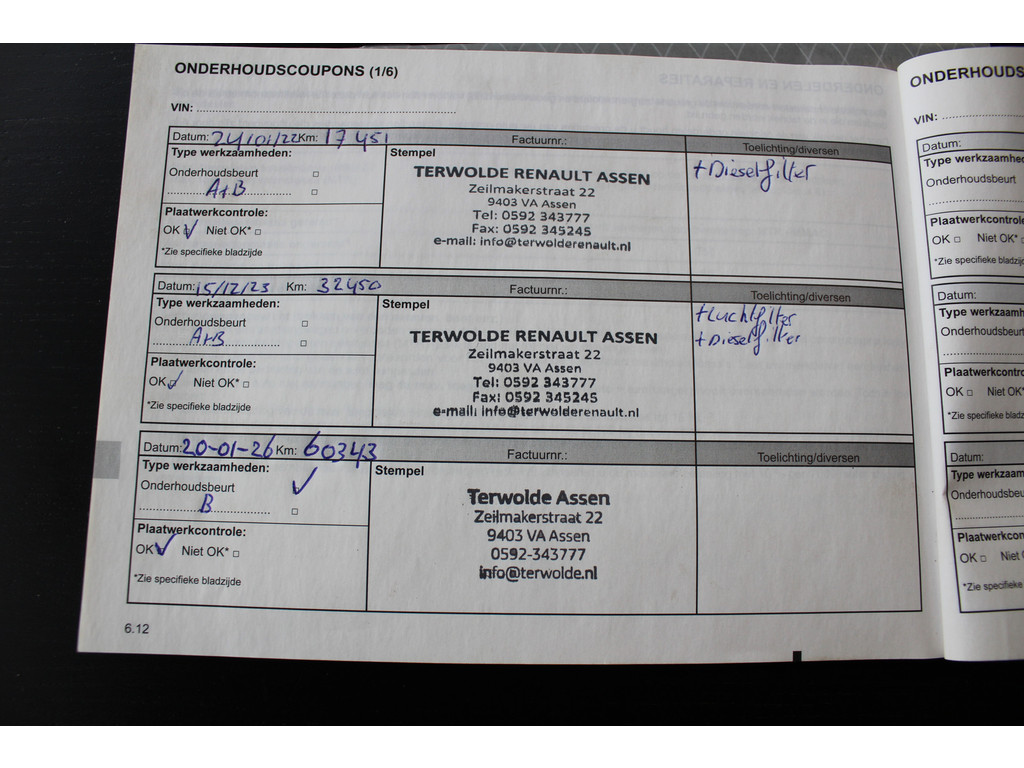 ONDERHOUDSCOUPONS (1/6)
VIN:
Datum: 24/01/22 Km: 17451 Factuurnr.: Toelichting/diversen
Type werkzaamheden: Stempel
Onderhoudsbeurt
A+B
Plaatwerkcontrole:
OK Niet OK*
*Zie specifieke bladzijde
TERWOLDE RENAULT ASSEN
Zeilmakerstraat 22
9403 VA Assen
Tel: 0592 343777
Fax: 0592 345245
e-mail: info@terwolderenault.nl
+Dieselfilter
Datum: 15/12/23 Km: 32450 Factuurnr.: Toelichting/diversen
Type werkzaamheden: Stempel
Onderhoudsbeurt
A+B
Plaatwerkcontrole:
OK Niet OK*
*Zie specifieke bladzijde
TERWOLDE RENAULT ASSEN
Zeilmakerstraat 22
9403 VA Assen
Tel: 0592 343777
Fax: 0592 345245
e-mail: info@terwolderenault.nl
+Luchtfilter
+Dieselfilter
Datum: 20-01-26 Km: 60343 Factuurnr.: Toelichting/diversen
Type werkzaamheden: Stempel
Onderhoudsbeurt
B
Plaatwerkcontrole:
OK Niet OK*
*Zie specifieke bladzijde
Terwolde Assen
Zeilmakerstraat 22
9403 VA Assen
0592-343777
info@terwolde.nl
6.12
ONDERHOUDS
VIN:
Datum:
Type werkzaamhe
Onderhoudsbeurt
Plaatwerkcontrole
OK Niet OK*
*Zie specifieke bladzij
Datum:
Type werkzaamh
Onderhoudsbeu
Plaatwerkcontro
OK Niet OK*
*Zie specifieke bladz
Datum:
Type werkzaam
Onderhoudsbeu
Plaatwerkcon
OK Niet
*Zie specifieke